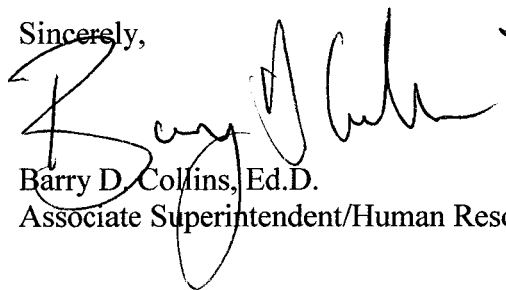 Sincerely,
Barry D. Collins
Barry D. Collins, Ed.D.
Associate Superintendent/Human Reso